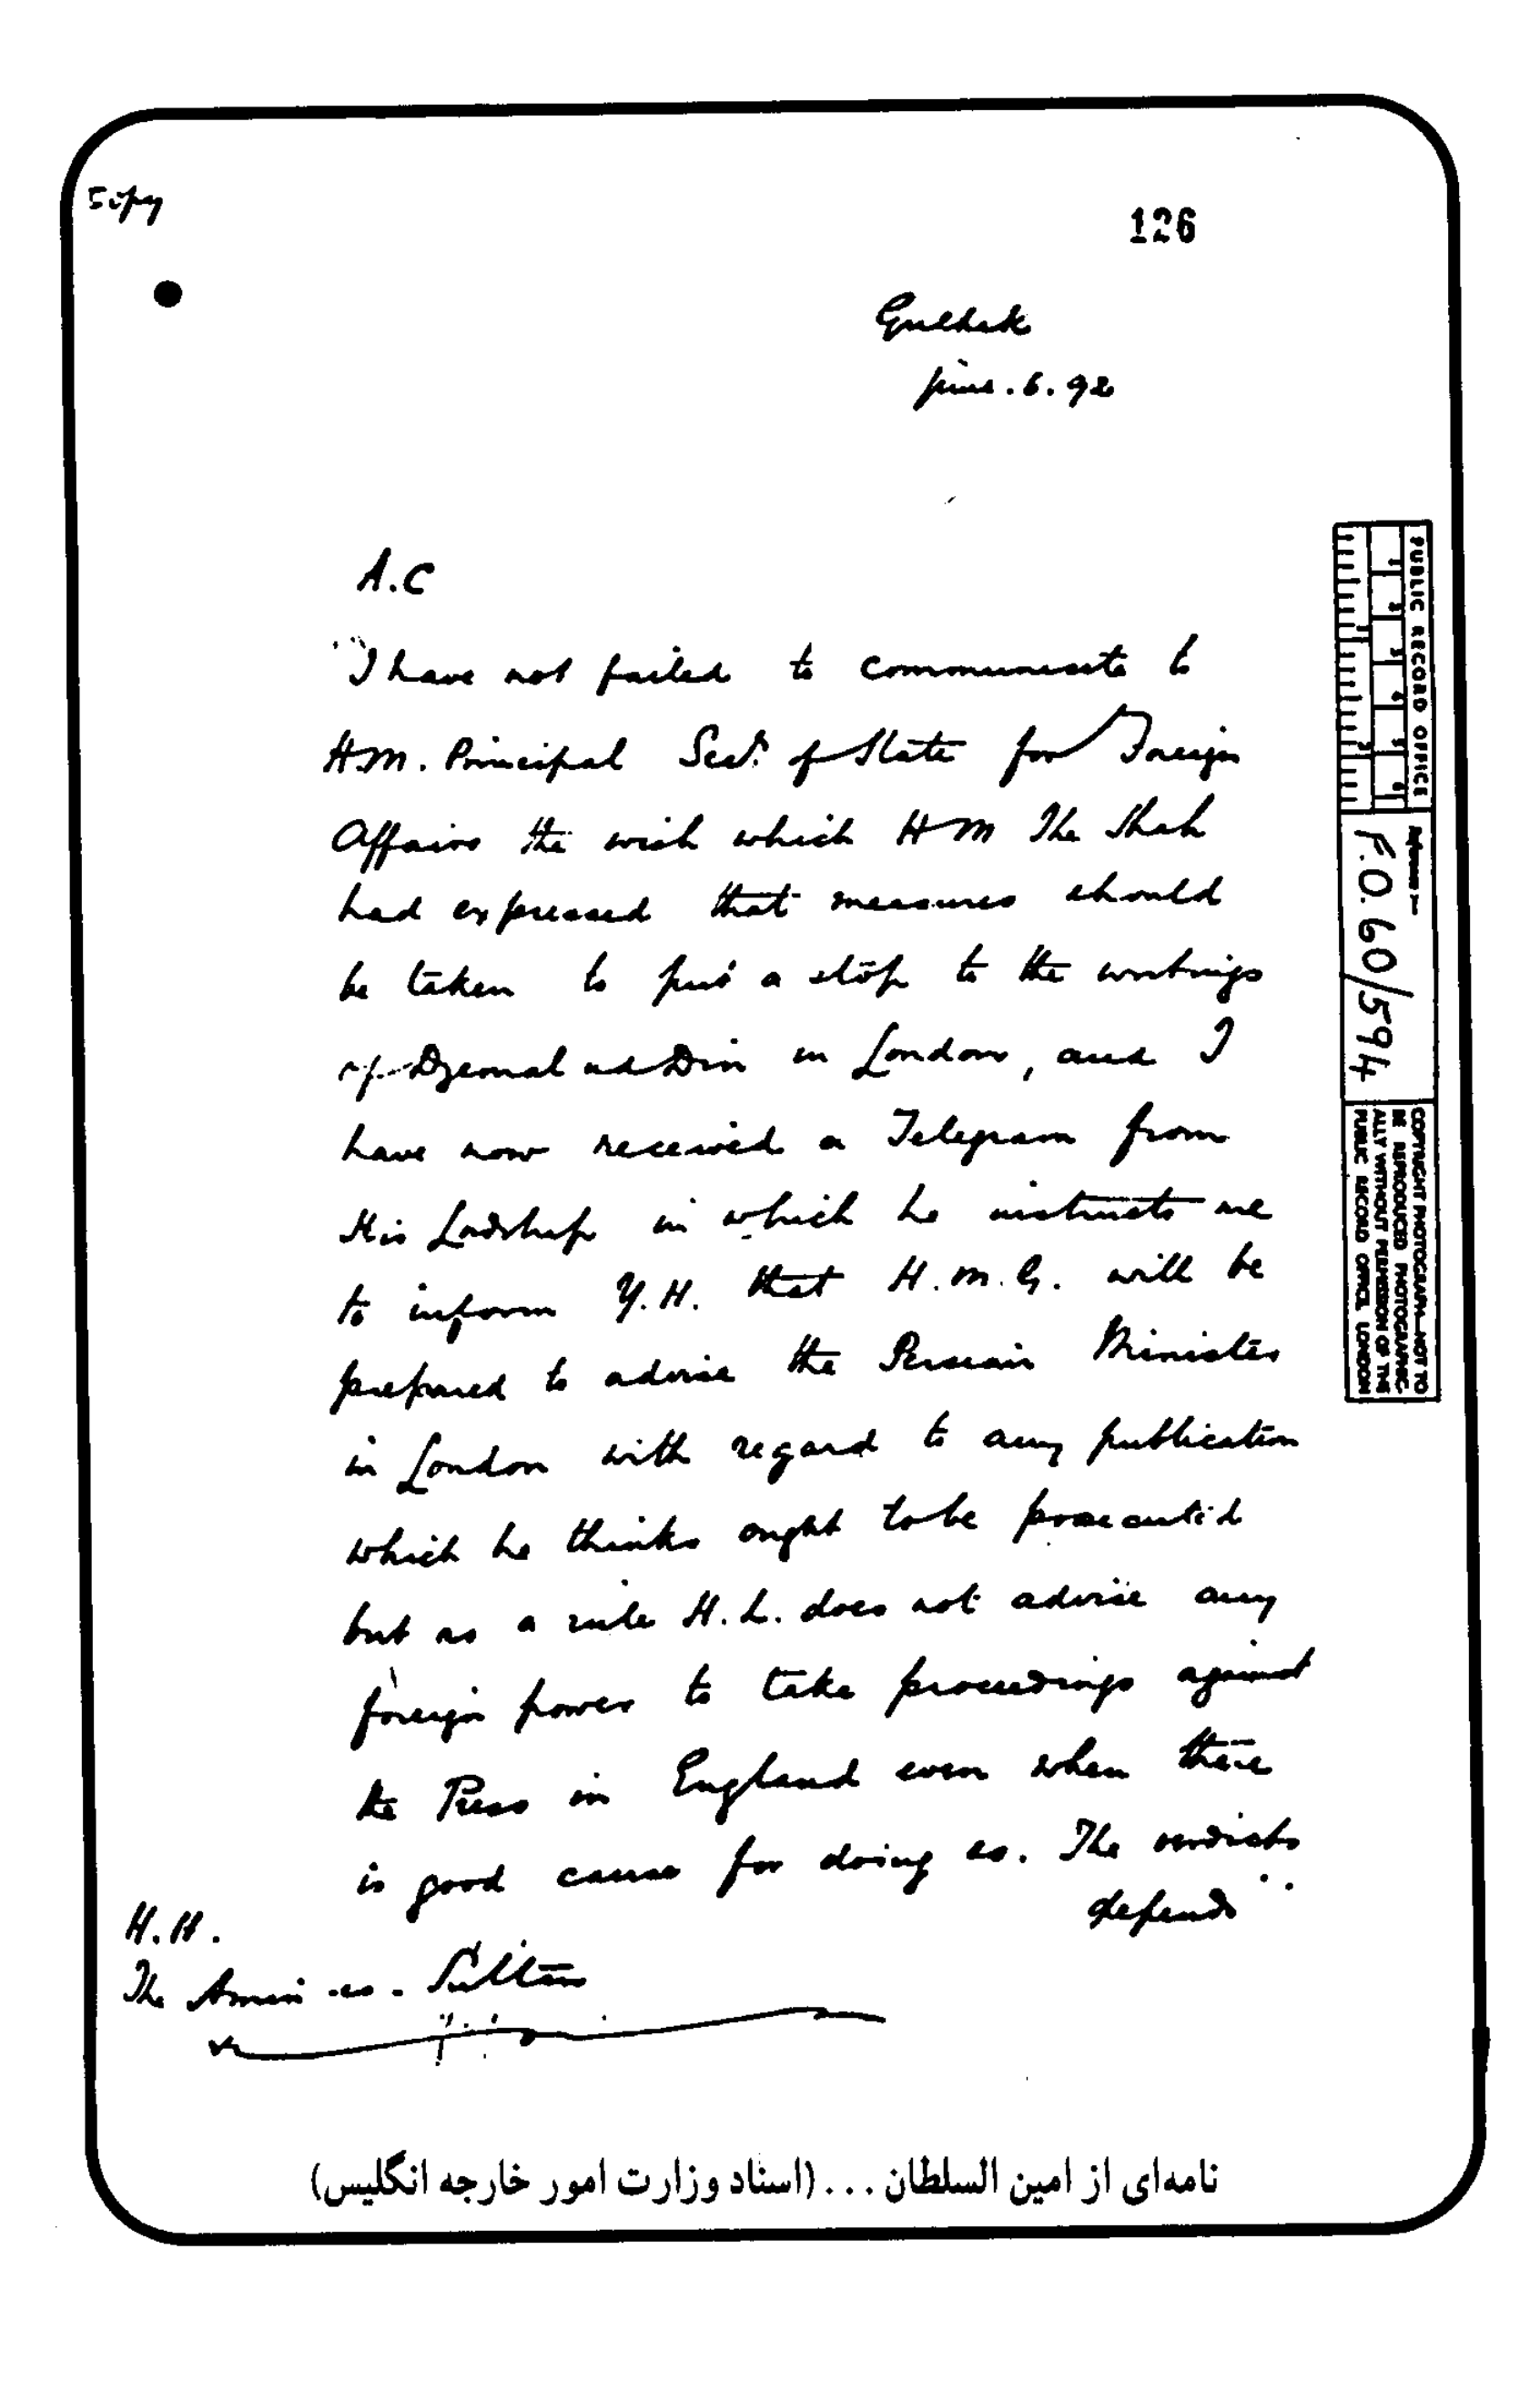 Copy
126
Gulhek
June. 6. 92
A.C
"I have not failed to communicate to
H.M. Principal Secy. of State for Foreign
Affairs the wish which H M The Shah
had expressed that measures should
be taken to put a stop to the writings
of Djemal ud Din in London, and I
have now received a Telegram from
His Lordship in which he instructs me
to inform Y.H. that H.M.G. will be
prepared to advise the Persian Minister
in London with regard to any publication
which he thinks ought to be prosecuted
but as a rule H.L. does not advise any
foreign power to take proceedings against
the Press in England even when there
is good cause for doing so. The verdicts
depend
H.H.
The Amin-es-Sultan
PUBLIC RECORD OFFICE
1 2 3 4 5 6
1 2
Reference:-
F.O. 60/594
COPYRIGHT PHOTOGRAPH—NOT TO
BE REPRODUCED PHOTOGRAPHIC-
ALLY WITHOUT PERMISSION OF THE
PUBLIC RECORD OFFICE, LONDON
نامه‌ای از امین السلطان ... (اسناد وزارت امور خارجه انگلیس)